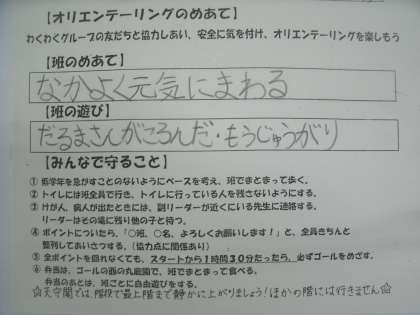 【オリエンテーリングのめあて】
わくわくグループの友だちと協力しあい、安全に気を付け、オリエンテーリングを楽しもう
【班のめあて】
なかよく元気にまわる
【班の遊び】
だるまさんがころんだ・もうじゅうがり
【みんなで守ること】
① 低学年を急がすことのないようにペースを考え、班でまとまって歩く。
② トイレには班全員で行き、トイレに行っている人を残さないようにする。
③ けが人、病人が出たときには、副リーダーが近くにいる先生に連絡する。
リーダーはその場に残り他の子と待つ。
④ ポイントについたら、「○班、○名、よろしくお願いします！」と、全員きちんと
整列してあいさつする。（協力点に関係あり）
⑤ 全ポイントを回れなくても、スタートから１時間３０分たったら、必ずゴールをめざす。
⑥ 弁当は、ゴールの西の丸庭園で、班でまとまって食べる。
弁当のあとは、班ごとに自由遊びをする。
☆天守閣では、階段で最上階まで静かに上がりましょう！ほかの階には行きません☆